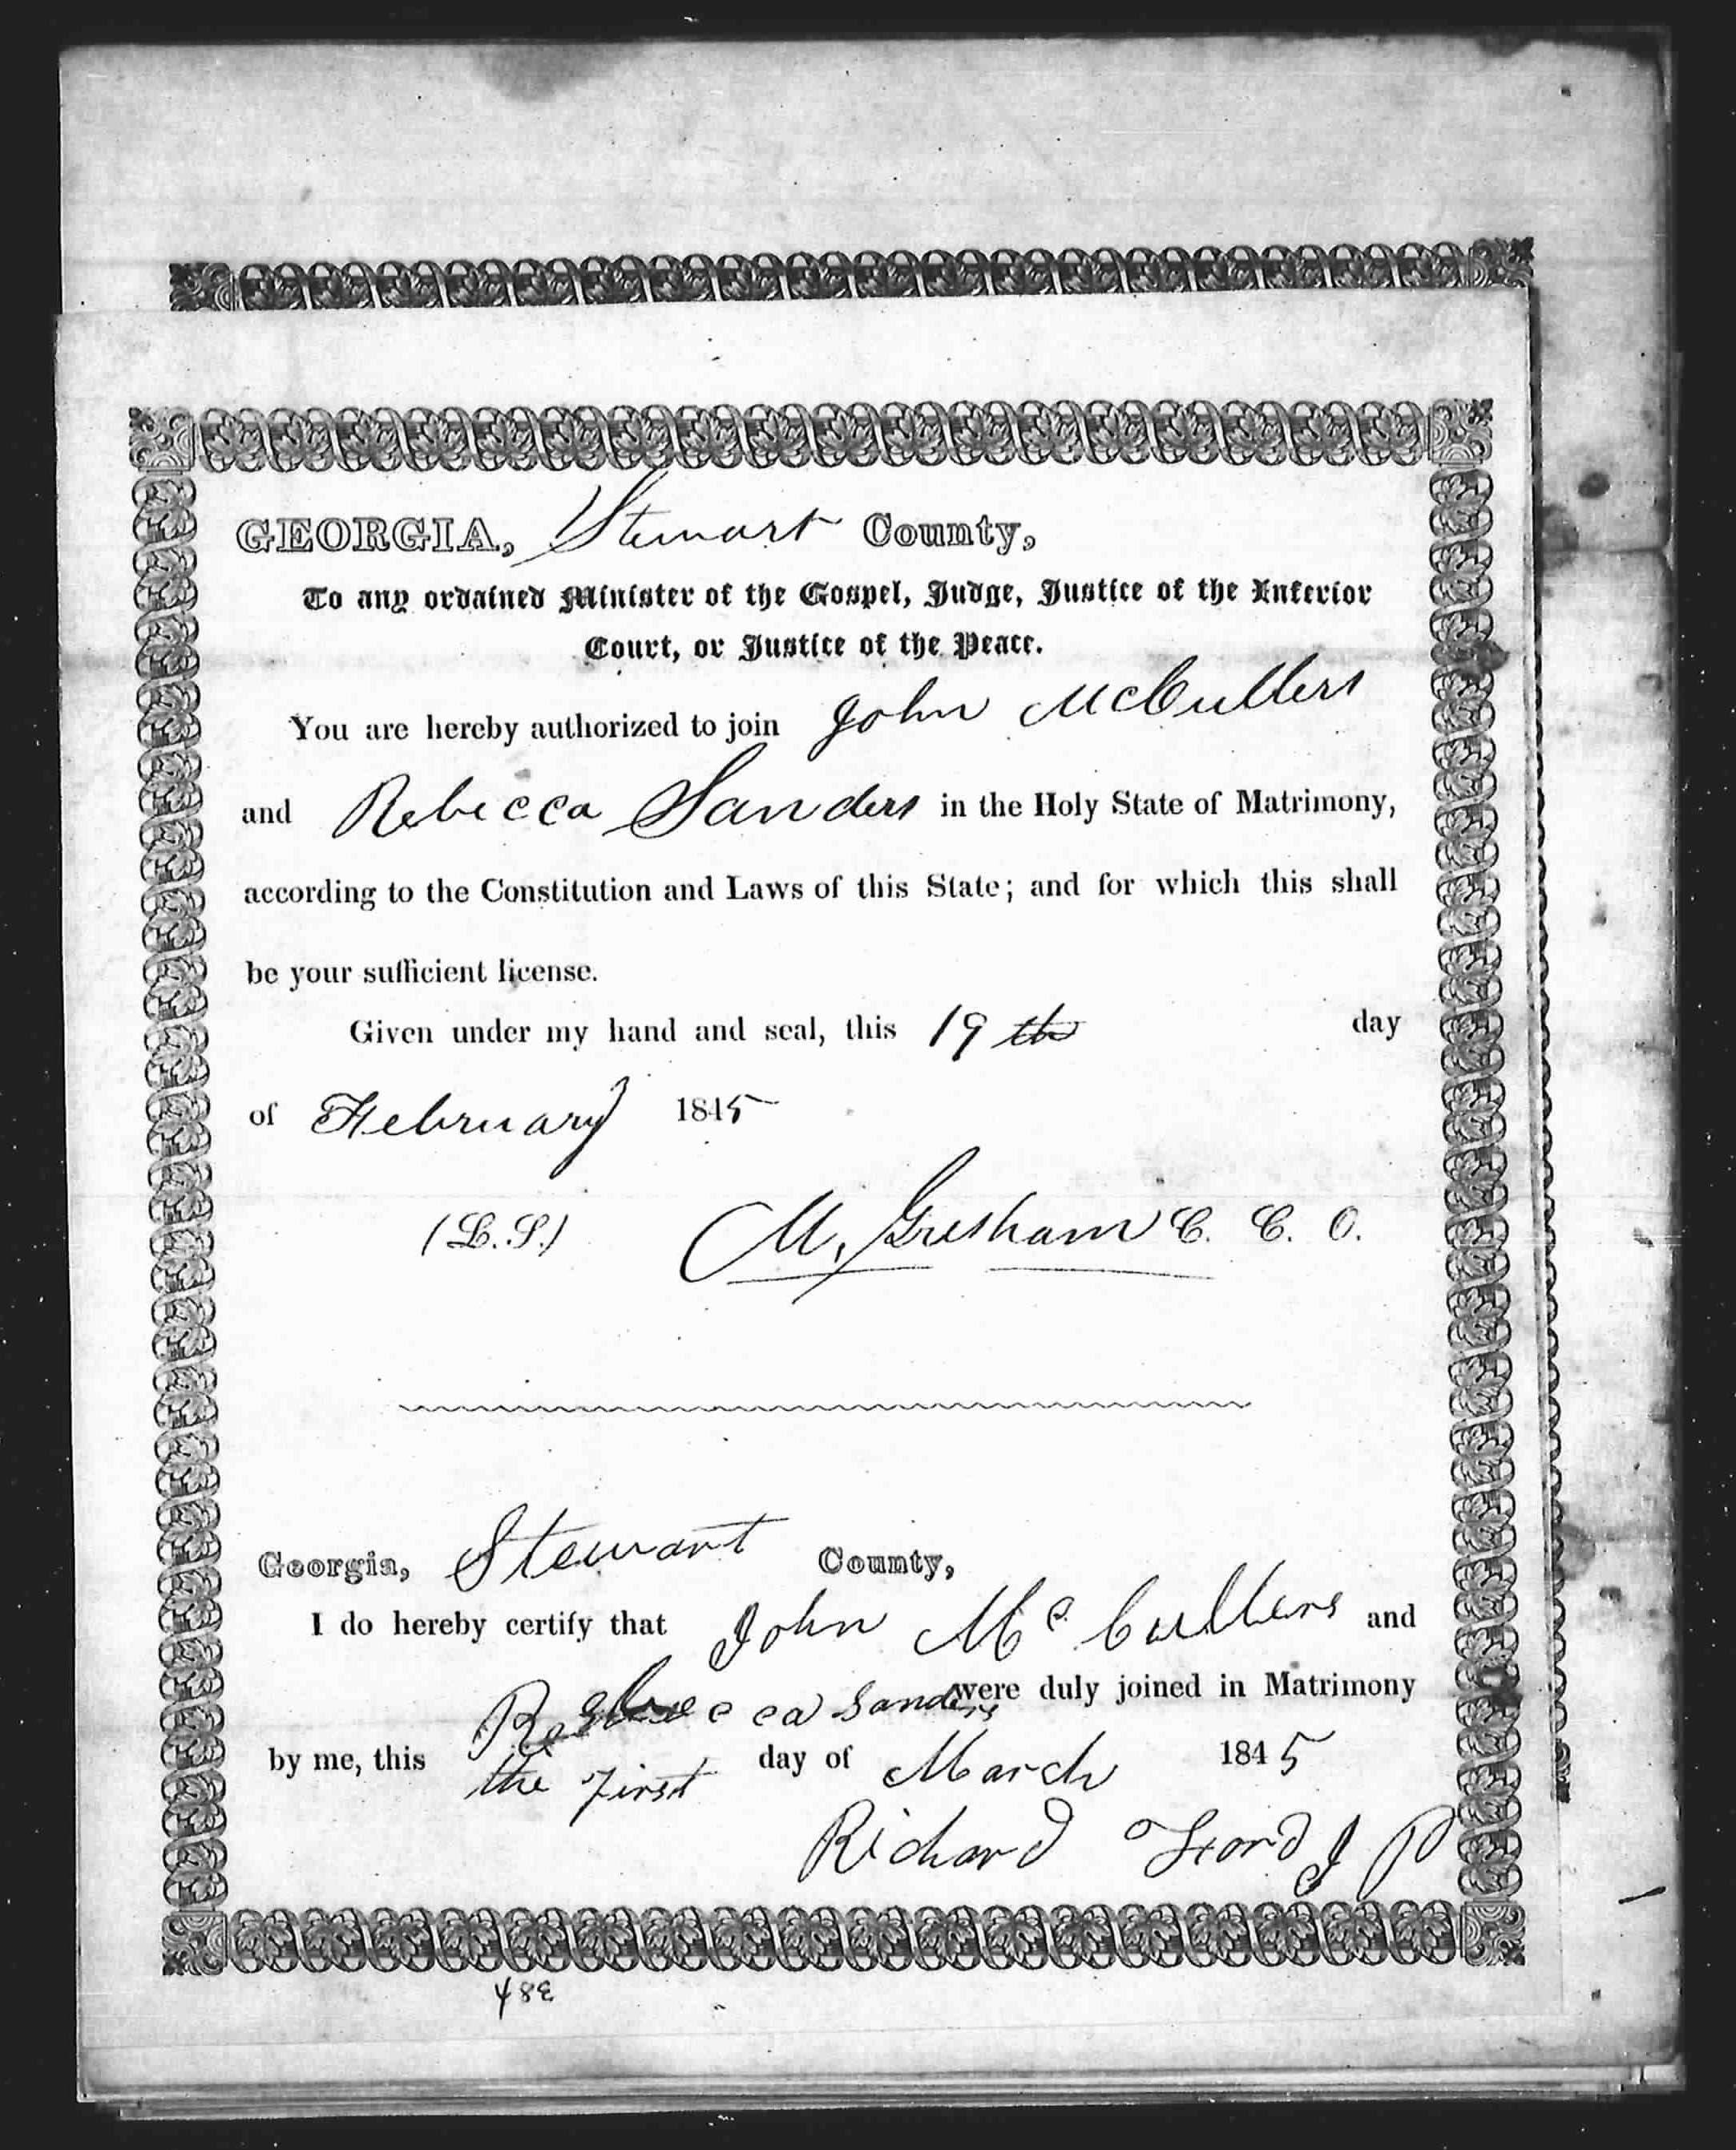 GEORGIA, Stewart County,
To any ordained Minister of the Gospel, Judge, Justice of the Inferior
Court, or Justice of the Peace.
You are hereby authorized to join John McCullers
and Rebecca Sanders in the Holy State of Matrimony,
according to the Constitution and Laws of this State; and for which this shall
be your sufficient license.
Given under my hand and seal, this 19th day
of February 1845
(L.S.) M. Gresham C. C. O.
Georgia, Stewart County,
I do hereby certify that John Mc Cullers and
Rebecca Sanders were duly joined in Matrimony
by me, this the first day of March 1845
Richard Ford J P